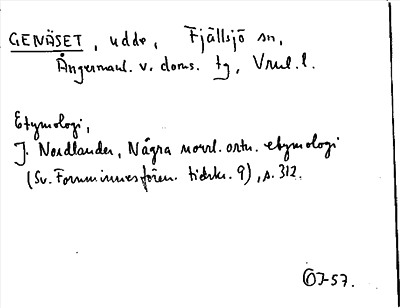 GENÄSET, udde, Fjällsjö sn,
Ångermanl. v. doms. tg, Vnl. l.
Etymologi,
J. Nordlander, Några norrl. ortn. etymologi
(Sv. Fornminnesfören. tidskr. 9), s. 312.
57.